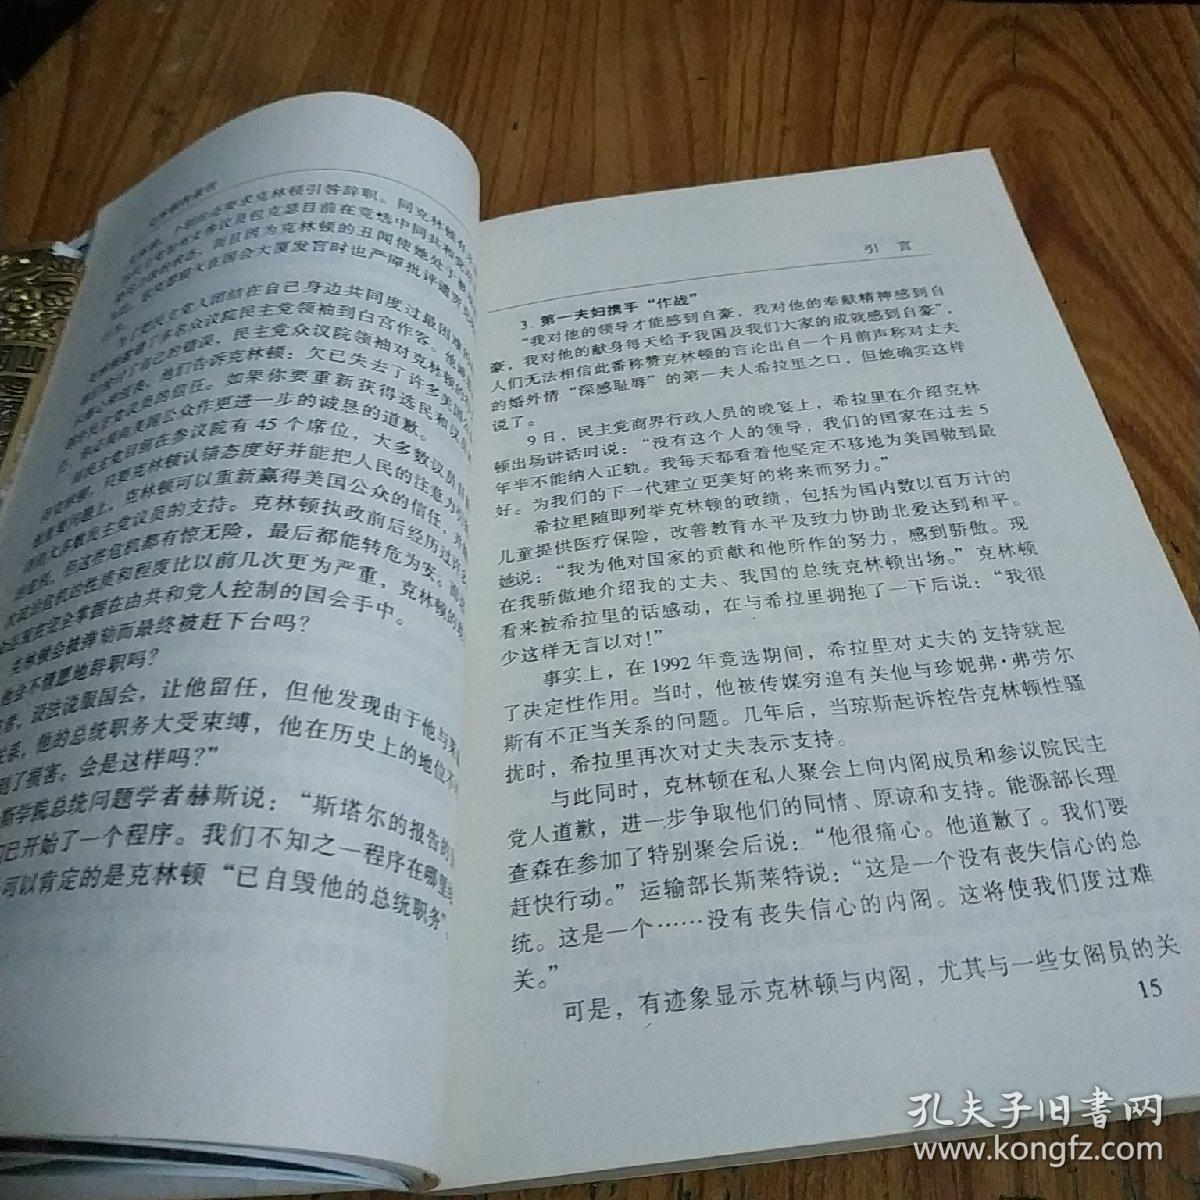 个别的还要求克林顿引咎辞职。同克林顿有
包克瑟目前在竞选中同共和党对
而且因为克林顿的丑闻使她处于
在国会大厦发言时也严厉批评
党人团结在自己身边共同度过最困难的
众议院民主党领袖到白宫作客，他
自己的错误，民主党众议院领袖对克林顿
他们告诉克林顿：欠已失去了许多美国
党议员的信任。如果你要重新获得选民和议
向美国公众作更进一步的诚恳的道歉。
民主党目前在参议院有45个席位，大多数议员
只要克林顿认错态度好并能把人民的注意力
克林顿可以重新赢得美国公众的信任，
大多数民主党议员的支持。克林顿执政前后经历过许
但这些危机都有惊无险，最后都能转危为安。而
政治危机的性质和程度比以前几次更为严重，克林顿的
完全掌握在由共和党人控制的国会手中。
克林顿会被弹劾而最终被赶下台吗？
会不情愿地辞职吗？
者，设法说服国会，让他留任，但他发现由于他与莱
关系，他的总统职务大受束缚，他在历史上的地位
到了损害。会是这样吗？”
斯学院总统问题学者赫斯说：“斯塔尔的报告的
已开始了一个程序。我们不知之一程序在哪里
可以肯定的是克林顿“已自毁他的总统职务”。
引 言
3. 第一夫妇携手“作战”
“我对他的领导才能感到自豪，我对他的奉献精神感到自
豪，我对他的献身每天给予我国及我们大家的成就感到自豪”，
人们无法相信此番称赞克林顿的言论出自一个月前声称对丈夫
的婚外情“深感耻辱”的第一夫人希拉里之口，但她确实这样
说了。
9日，民主党商界行政人员的晚宴上，希拉里在介绍克林
顿出场讲话时说：“没有这个人的领导，我们的国家在过去5
年半不能纳人正轨。我每天都看着他坚定不移地为美国做到最
好。为我们的下一代建立更美好的将来而努力。”
希拉里随即列举克林顿的政绩，包括为国内数以百万计的
儿童提供医疗保险，改善教育水平及致力协助北爱达到和平。
她说：“我为他对国家的贡献和他所作的努力，感到骄傲。现
在我骄傲地介绍我的丈夫、我国的总统克林顿出场。”克林顿
看来被希拉里的话感动，在与希拉里拥抱了一下后说：“我很
少这样无言以对！”
事实上，在1992年竞选期间，希拉里对丈夫的支持就起
了决定性作用。当时，他被传媒穷追有关他与珍妮弗·弗劳尔
斯有不正当关系的问题。几年后，当琼斯起诉控告克林顿性骚
扰时，希拉里再次对丈夫表示支持。
与此同时，克林顿在私人聚会上向内阁成员和参议院民主
党人道歉，进一步争取他们的同情、原谅和支持。能源部长理
查森在参加了特别聚会后说：“他很痛心。他道歉了。我们要
赶快行动。”运输部长斯莱特说：“这是一个没有丧失信心的总
统。这是一个……没有丧失信心的内阁。这将使我们度过难
关。”
可是，有迹象显示克林顿与内阁，尤其与一些女阁员的关
15
孔夫子旧书网
www.kongfz.com